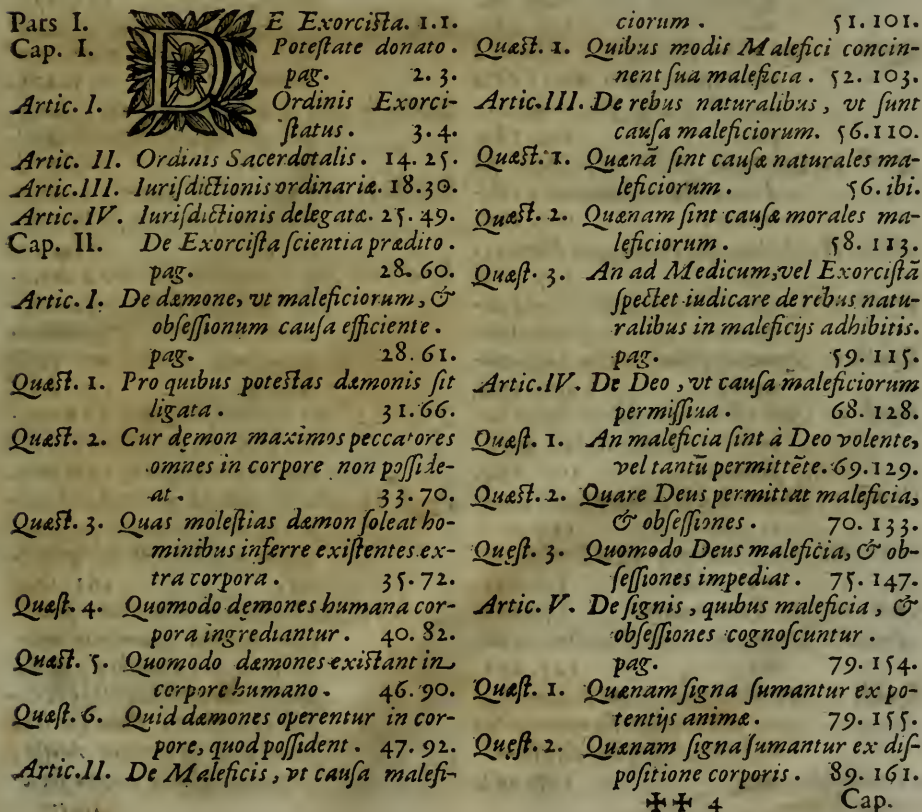 Pars I. DE Exorcista. 1.1.
Cap. I. Potestate donato.
pag. 2. 3.
Artic. I. Ordinis Exorci-
status. 3. 4.
Artic. II. Ordinis Sacerdotalis. 14. 25.
Artic. III. Iurisdictionis ordinariæ. 18. 30.
Artic. IV. Iurisdictionis delegatæ. 25. 49.
Cap. II. De Exorcista scientia prædito.
pag. 28. 60.
Artic. I. De dæmone, vt maleficiorum, &
obsessionum causa efficiente.
pag. 28. 61.
Quæst. 1. Pro quibus potestas dæmonis sit
ligata. 31. 66.
Quæst. 2. Cur dęmon maximos peccatores
omnes in corpore non posside-
at. 33. 70.
Quæst. 3. Quas molestias dæmon soleat ho-
minibus inferre existentes ex-
tra corpora. 35. 72.
Quæst. 4. Quomodo dęmones humana cor-
pora ingrediantur. 40. 82.
Quæst. 5. Quomodo dæmones existant in
corpore humano. 46. 90.
Quæst. 6. Quid dæmones operentur in cor-
pore, quod possident. 47. 92.
Artic. II. De Maleficis, vt causa malefi-
ciorum. 51. 101.
Quæst. 1. Quibus modis Malefici concin-
nent sua maleficia. 52. 103.
Artic. III. De rebus naturalibus, vt sunt
causa maleficiorum. 56. 110.
Quæst. 1. Quænā sint causæ naturales ma-
leficiorum. 56. ibi.
Quæst. 2. Quænam sint causæ morales ma-
leficiorum. 58. 113.
Quæst. 3. An ad Medicum, vel Exorcistā
spectet iudicare de rebus natu-
ralibus in maleficijs adhibitis.
pag. 59. 115.
Artic. IV. De Deo, vt causa maleficiorum
permissiua. 68. 128.
Quæst. 1. An maleficia sint à Deo volente,
vel tantū permittēte. 69. 129.
Quæst. 2. Quare Deus permittat maleficia,
& obsessiones. 70. 133.
Quęst. 3. Quomodo Deus maleficia, & ob-
sessiones impediat. 75. 147.
Artic. V. De signis, quibus maleficia, &
obsessiones cognoscuntur.
pag. 79. 154.
Quæst. 1. Quænam signa sumantur ex po-
tentijs animæ. 79. 155.
Quęst. 2. Quænam signa sumantur ex dis-
positione corporis. 89. 161.
✠✠ 4 Cap.